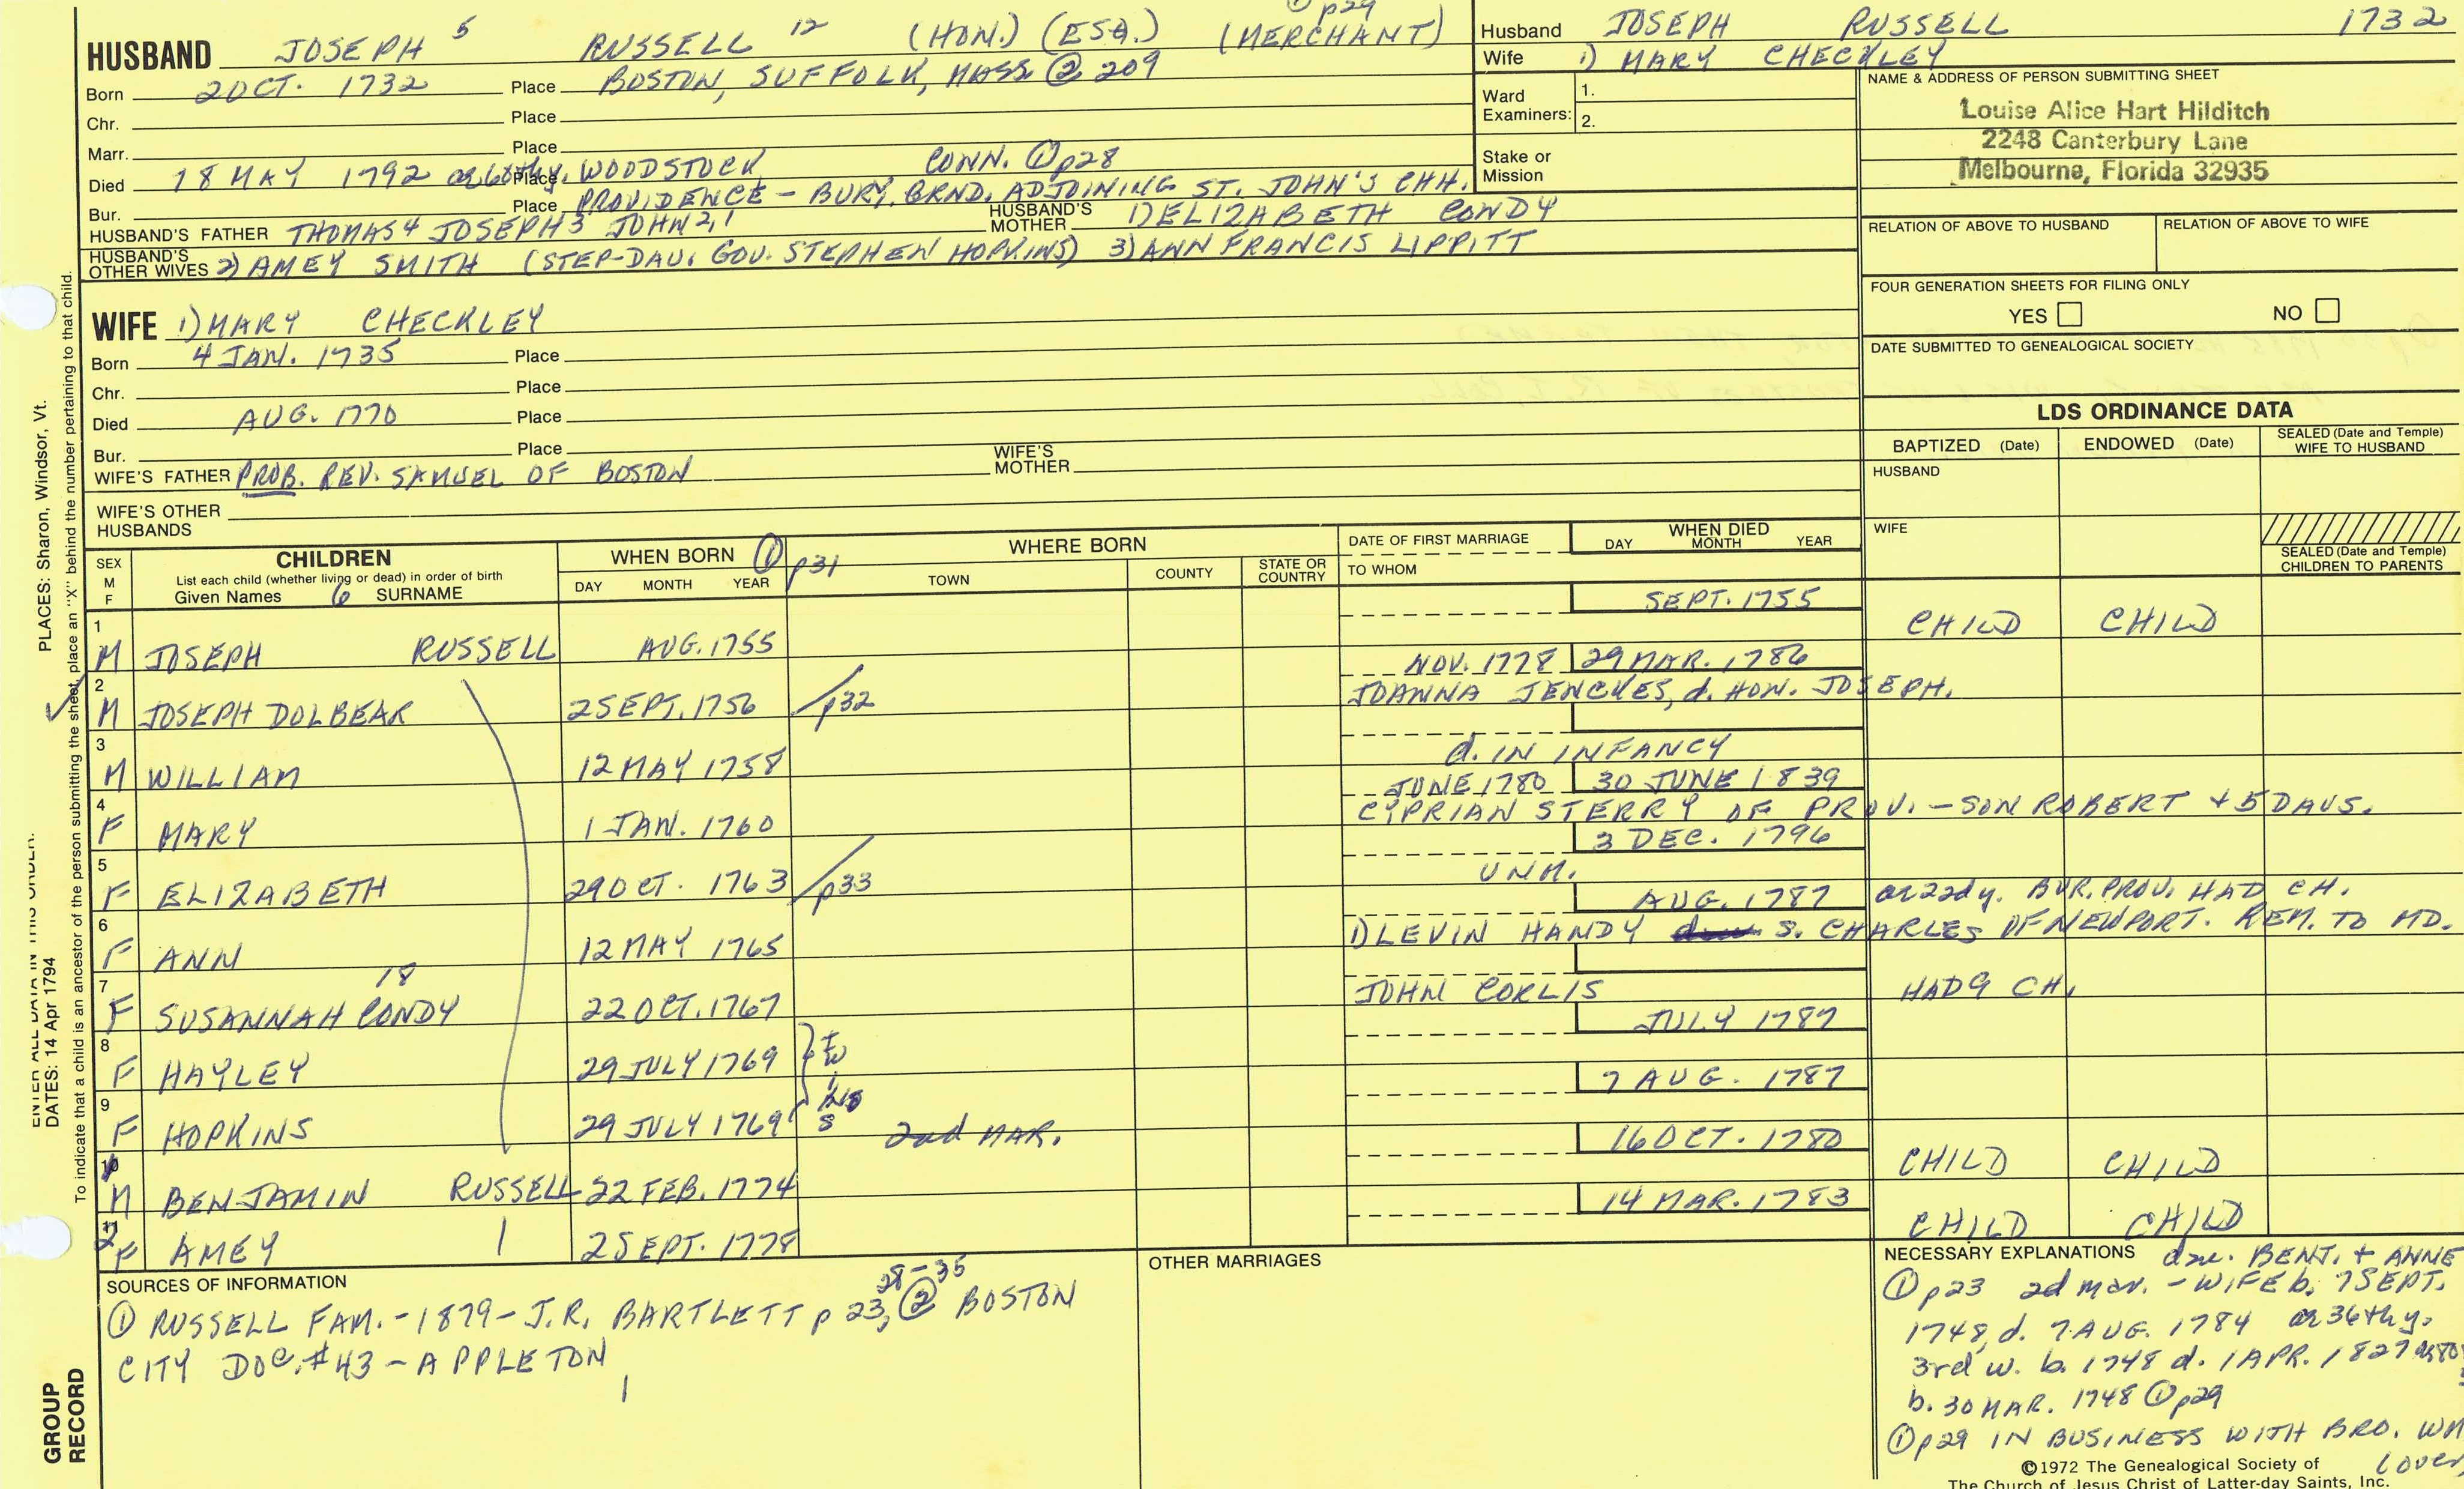 ① p29
HUSBAND JOSEPH 5 RUSSELL 12 (HON.) (ESQ.) (MERCHANT)
Born 2 OCT. 1732 Place BOSTON, SUFFOLK, MASS @ 209
Chr. Place
Marr. Place
Died 18 MAY 1792 Place WOODSTOCK CONN. ① p28
Bur. Place PROVIDENCE - BURY. GRND. ADJOINING ST. JOHN'S CHH.
HUSBAND'S FATHER THOMAS4 JOSEPH3 JOHN2,1 HUSBAND'S MOTHER 1) ELIZABETH CONDY
HUSBAND'S OTHER WIVES 2) AMEY SMITH (STEP-DAU. GOV. STEPHEN HOPKINS) 3) ANN FRANCIS LIPPITT
WIFE 1) MARY CHECKLEY
Born 4 JAN. 1735 Place
Chr. Place
Died AUG. 1770 Place
Bur. Place
WIFE'S FATHER PROB. REV. SAMUEL OF BOSTON WIFE'S MOTHER
WIFE'S OTHER HUSBANDS
Husband JOSEPH RUSSELL 1732
Wife 1) MARY CHECKLEY
Ward Examiners: 1.
2.
Stake or Mission
NAME & ADDRESS OF PERSON SUBMITTING SHEET
Louise Alice Hart Hilditch
2248 Canterbury Lane
Melbourne, Florida 32935
RELATION OF ABOVE TO HUSBAND RELATION OF ABOVE TO WIFE
FOUR GENERATION SHEETS FOR FILING ONLY
YES NO
DATE SUBMITTED TO GENEALOGICAL SOCIETY
LDS ORDINANCE DATA
BAPTIZED (Date) ENDOWED (Date) SEALED (Date and Temple) WIFE TO HUSBAND
HUSBAND
WIFE
SEALED (Date and Temple) CHILDREN TO PARENTS
SEX M F
CHILDREN
List each child (whether living or dead) in order of birth
Given Names 6 SURNAME
WHEN BORN ① p31
DAY MONTH YEAR
WHERE BORN
TOWN COUNTY STATE OR COUNTRY
DATE OF FIRST MARRIAGE
TO WHOM
WHEN DIED
DAY MONTH YEAR
1 M JOSEPH RUSSELL AUG. 1755 SEPT. 1755 CHILD CHILD
2 M JOSEPH DOLBEAR 2 SEPT. 1756 p32 NOV. 1778 29 MAR. 1786
JOANNA JENCKES, d. HON. JOSEPH.
3 M WILLIAM 12 MAY 1758 d. IN INFANCY
4 F MARY 1 JAN. 1760 JUNE 1780 30 JUNE 1839
CYPRIAN STERRY OF PROV. - SON ROBERT + 5 DAUS.
5 F ELIZABETH 29 OCT. 1763 p33 3 DEC. 1796
UNM.
6 F ANN 12 MAY 1765 AUG. 1787 ae 22dy. BUR. PROV. HAD CH.
1) LEVIN HANDY S. CHARLES OF NEWPORT. REM. TO MD.
7 F SUSANNAH CONDY 18 22 OCT. 1767 JOHN CORLIS HAD 9 CH.
8 F HAYLEY 29 JULY 1769 JULY 1787
9 F HOPKINS 29 JULY 1769 7 AUG. 1787
2nd MAR.
10 M BENJAMIN RUSSELL 22 FEB. 1774 16 OCT. 1780 CHILD CHILD
11 2 F AMEY 2 SEPT. 1778 14 MAR. 1783 CHILD CHILD
SOURCES OF INFORMATION
28-35
① RUSSELL FAM. - 1879 - J.R. BARTLETT p 23, ② BOSTON
CITY DOC. #43 - APPLETON
OTHER MARRIAGES
NECESSARY EXPLANATIONS dau. BENJ. + ANNE
① p23 2d mar. - WIFE b. 7 SEPT.
1748, d. 7 AUG. 1784 ae 36thy.
3rd w. b. 1748 d. 1 APR. 1827
b. 30 MAR. 1748 ① p29
① p29 IN BUSINESS WITH BRO. WM
(over
©1972 The Genealogical Society of
The Church of Jesus Christ of Latter-day Saints, Inc.
PLACES: Sharon, Windsor, Vt.
To indicate that a child is an ancestor of the person submitting the sheet, place an "X" behind the number pertaining to that child.
ENTER ALL DATA IN THIS ORDER:
DATES: 14 Apr 1794
GROUP RECORD